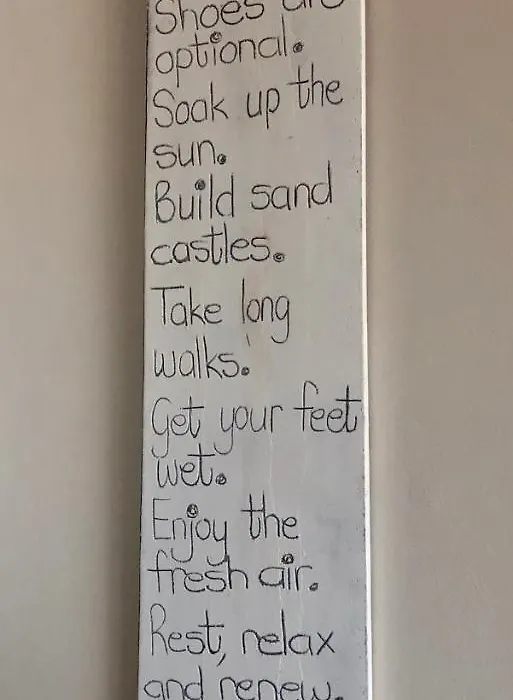 Shoes are
optional.
Soak up the
sun.
Build sand
castles.
Take long
walks.
Get your feet
wet.
Enjoy the
fresh air.
Rest, relax
and renew.